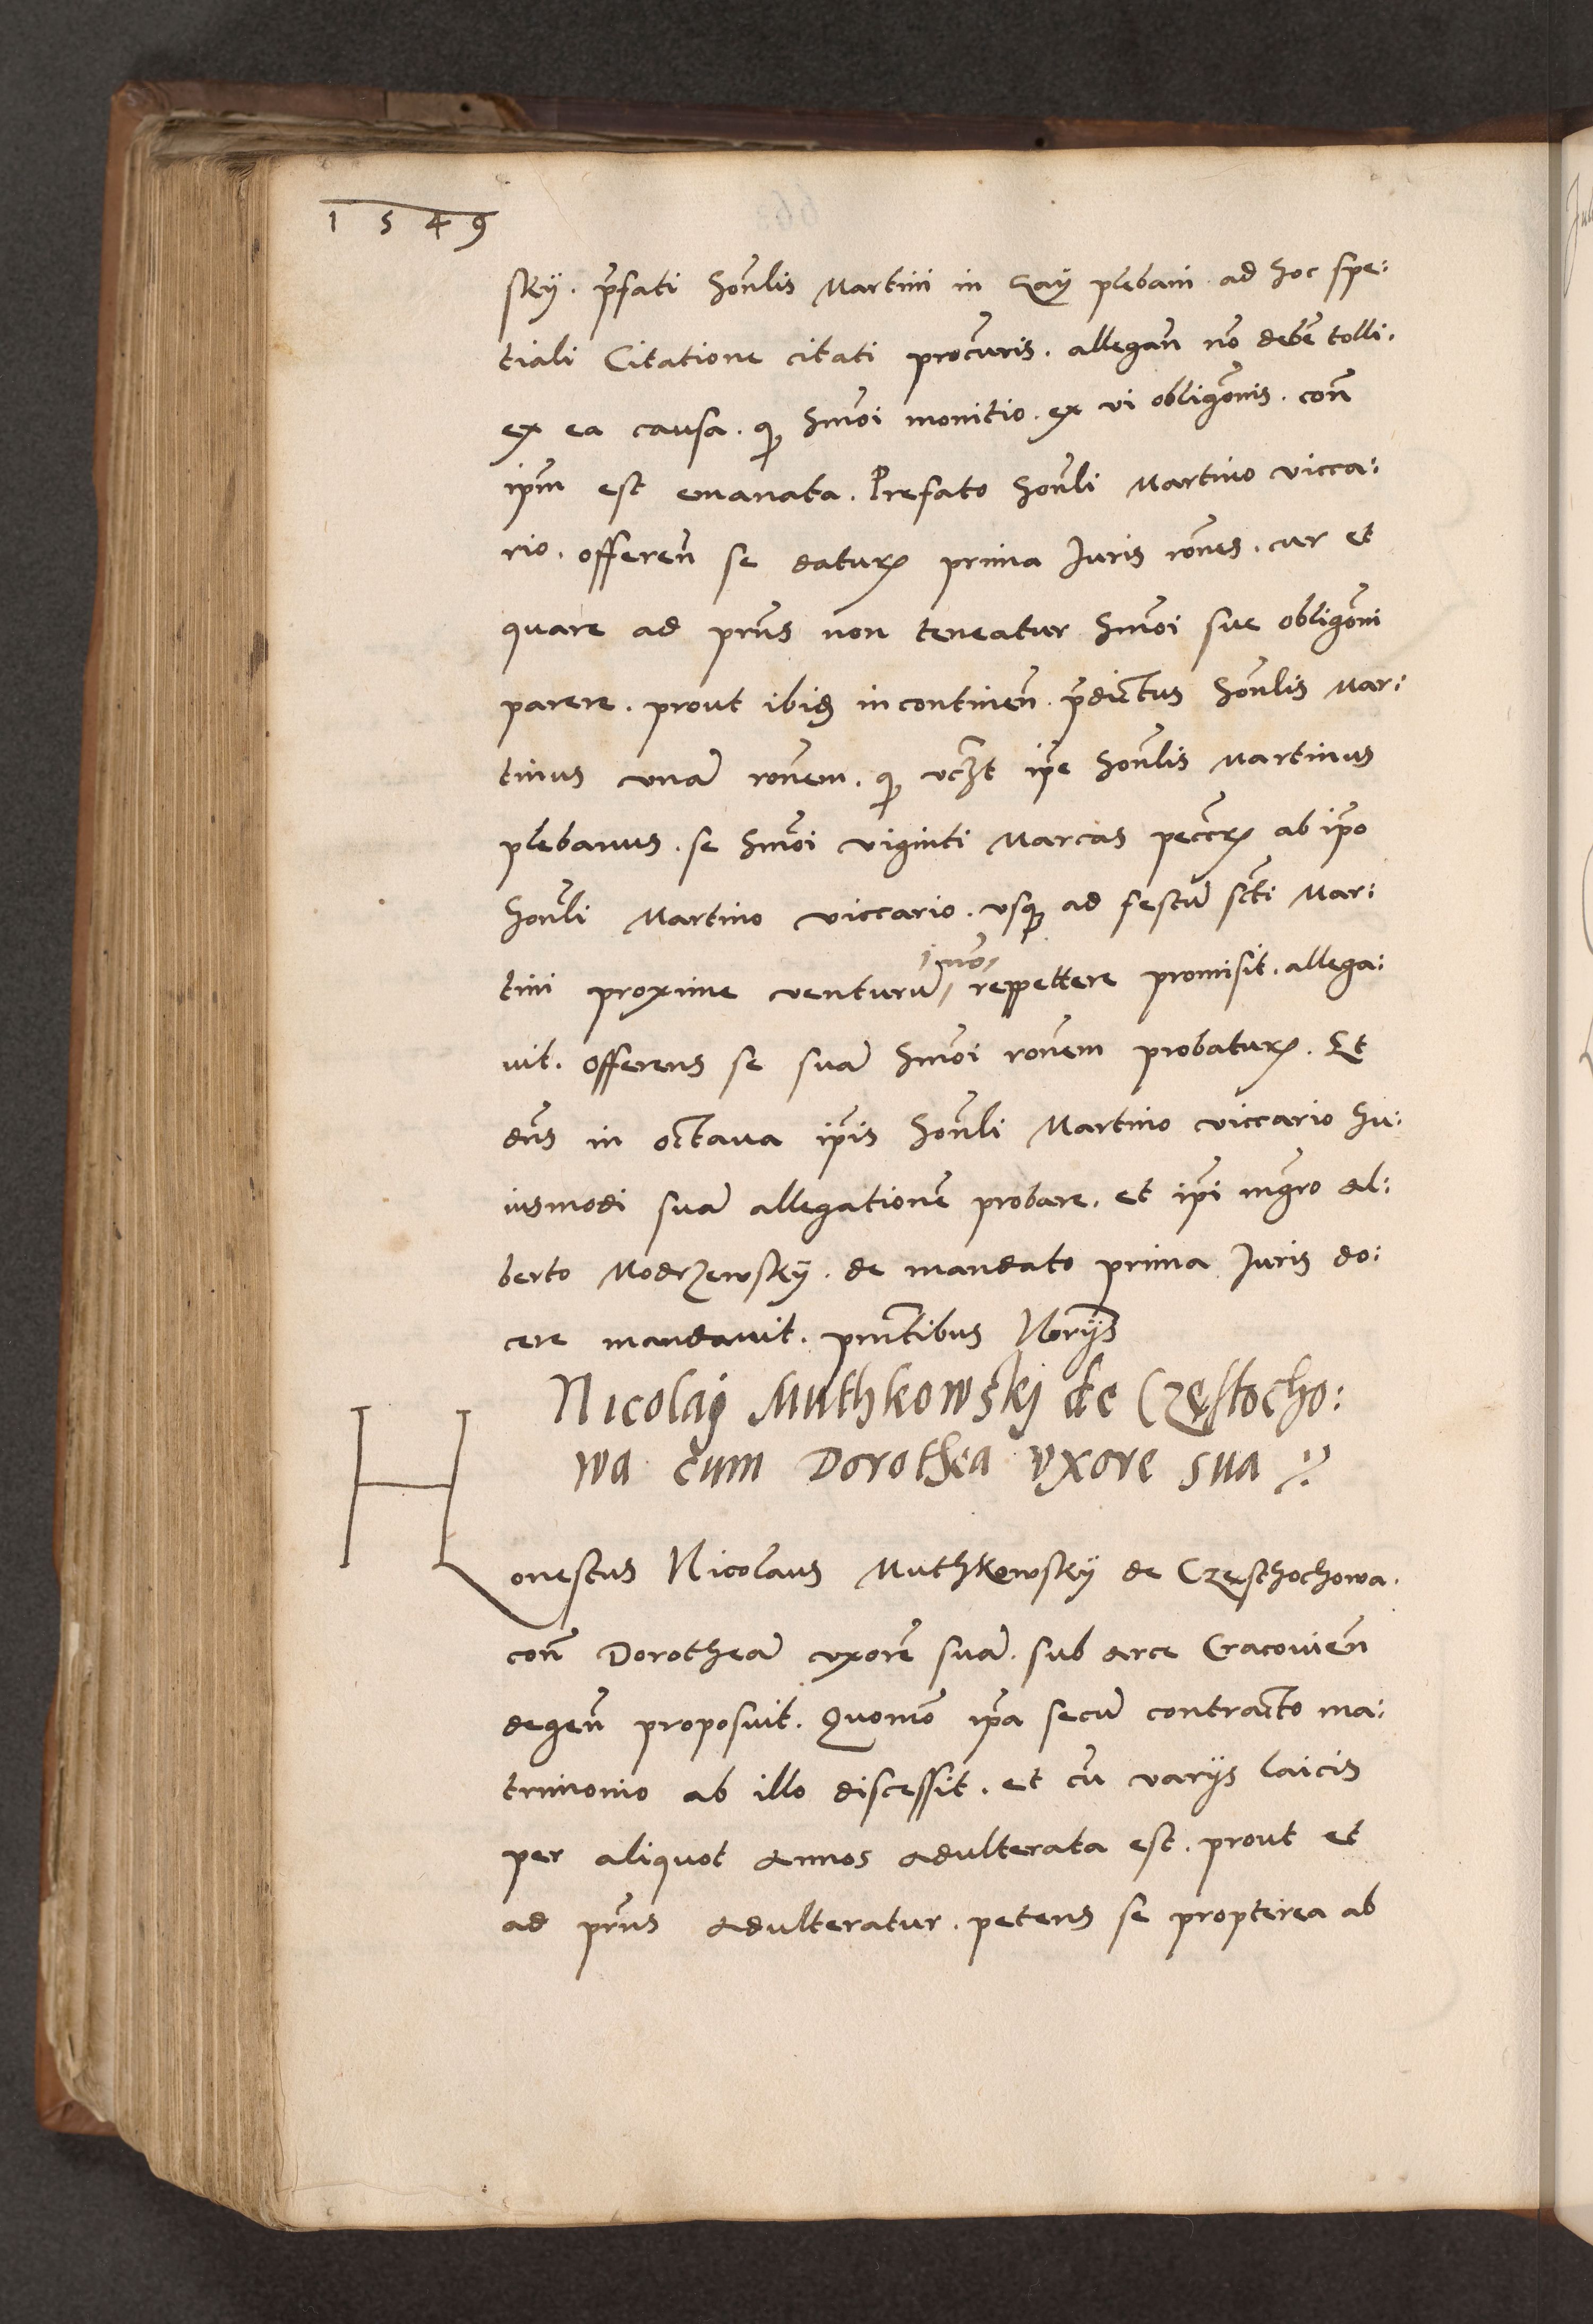 1549
sky. pꝛfati honꝉlis Martini in Gay plebani ad hoc spe:
tiali Citatione citati procuris. allegan̄ nō debē tolli.
ex ea causa. qꝫ hmōi monitio. ex vi obligōnis. con̄
ip̄m est emanata. Prefato honl̄i Martino vicca:
rio. offeren̄ se daturꝝ prima Juris rōnes. cur et
quare ad prn̄s non teneatur hmōi sue obligōni
parere. prout ibidꝫ in continen̄. p̄dictus honl̄is Mar:
tinus unā rōnem. qꝫ vcꝫt ip̄e honl̄is Martinus
plebanus. se hmōi viginti Marcas peccꝝ ab ip̄o
honl̄i Martino viccario. vsqꝫ ad festū scti Mar:
imō
tini proxime venturū, reppettere promisit. allega:
vit. offerens se suā hmōi rōnem probaturꝝ. Et
dn̄s in octaua ip̄is honl̄i Martino viccario hu:
iusmodi suā allegationē probare. et ip̄i mgr̄o Al:
berto Modrzewsky. de mandato prima Juris do:
cere mandauit. pn̄tibus Norijs
Nicolaj Muthkowskj de Częstocho:
wa cum Dorothea vxore sua
Honestus Nicolaus Muthkowsky de Cząsthochowa.
con̄ Dorotheā vxorē suā. sub arce Cracouien̄
degen̄ proposuit. Quomō ip̄a secū contracto ma:
trimonio ab illo discessit. et cū varijs laicis
per aliquot Annos adulterata est. prout et
ad prn̄s adulteratur. petens se propterea ab